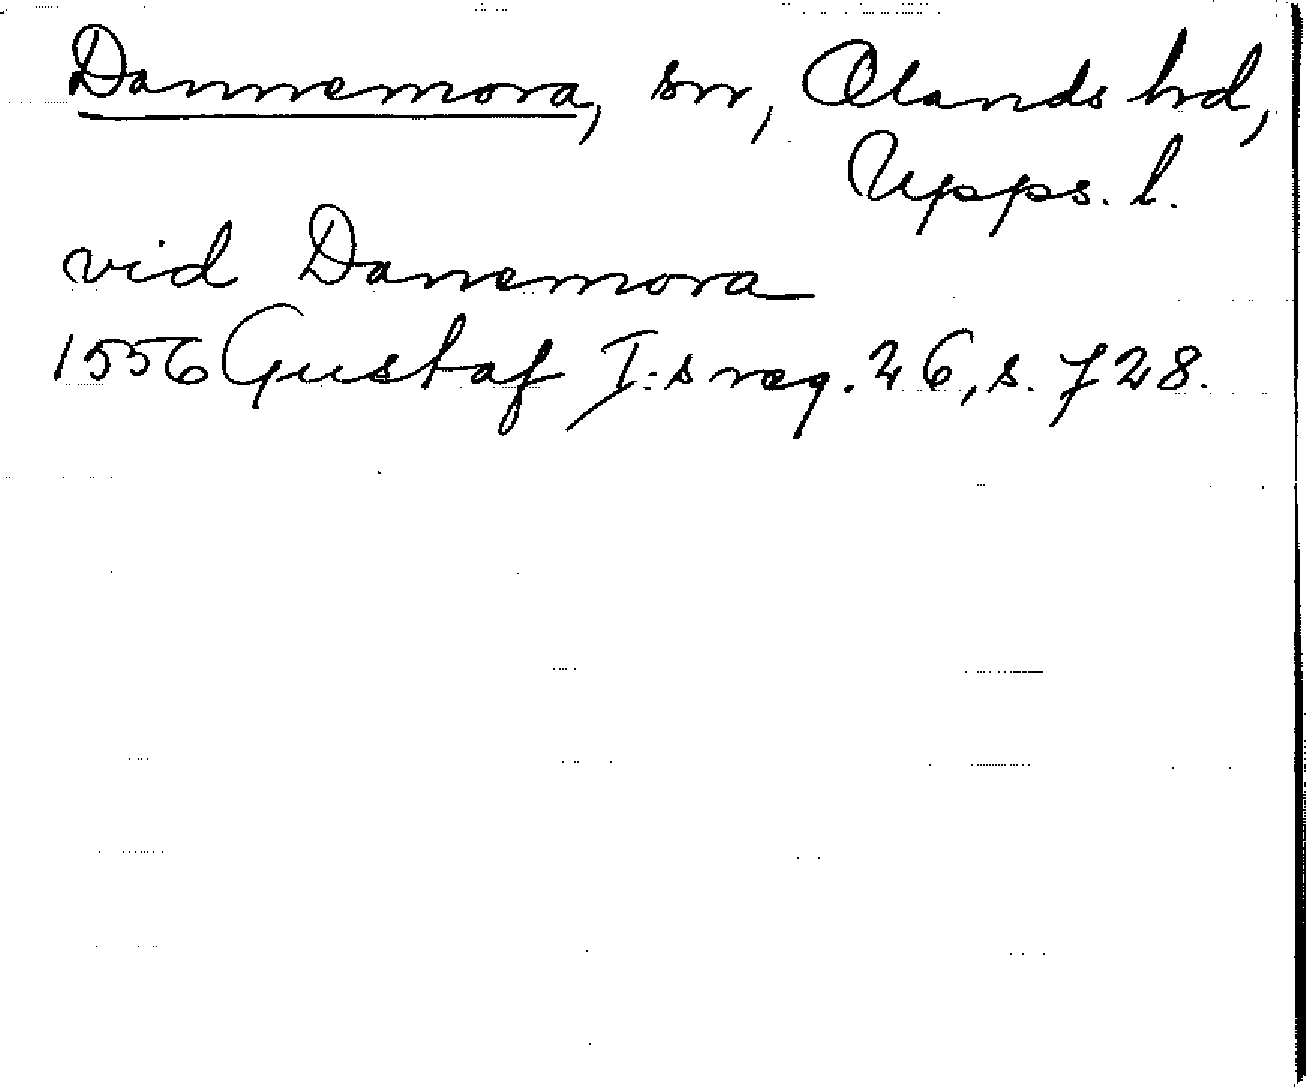 Dannemora, sn, Olands hd,
Upps. l.
vid Danemora
1556 Gustaf I:s reg. 26, s. 728.